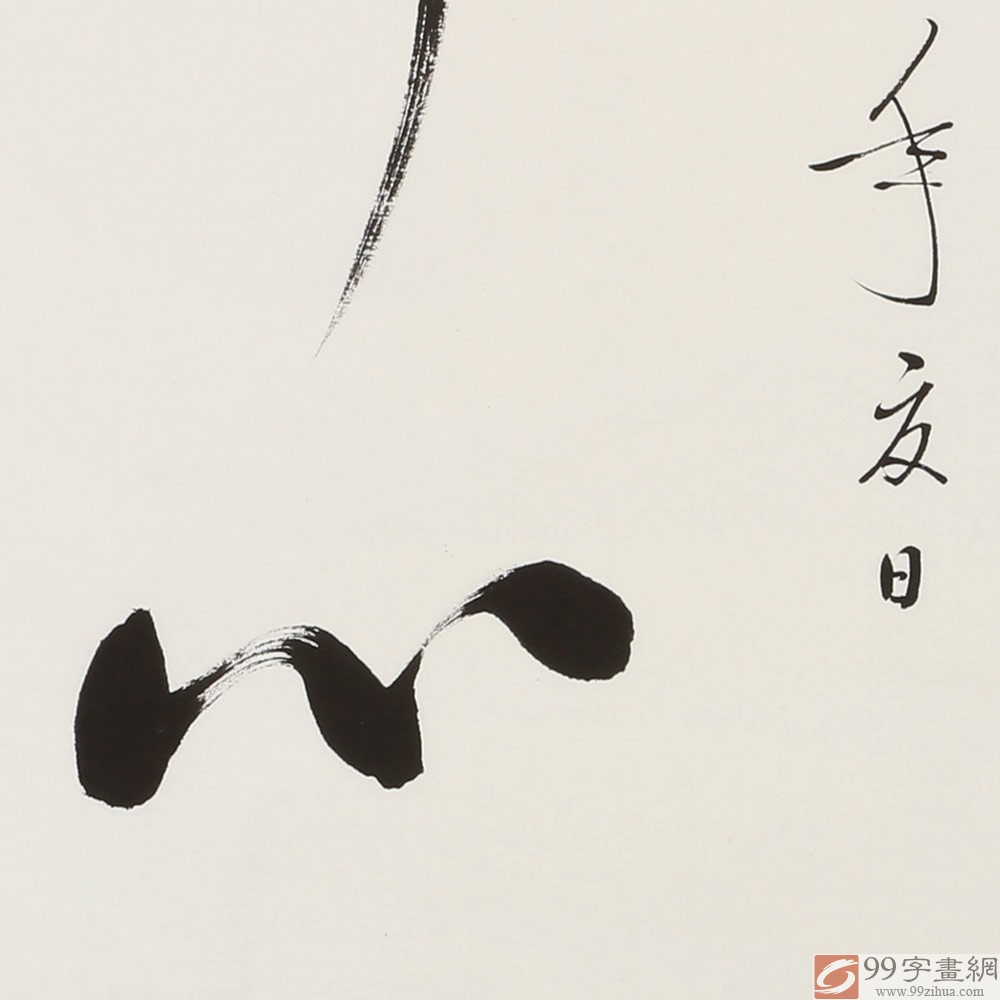 年夏日
99字畫網
www.99zihua.com